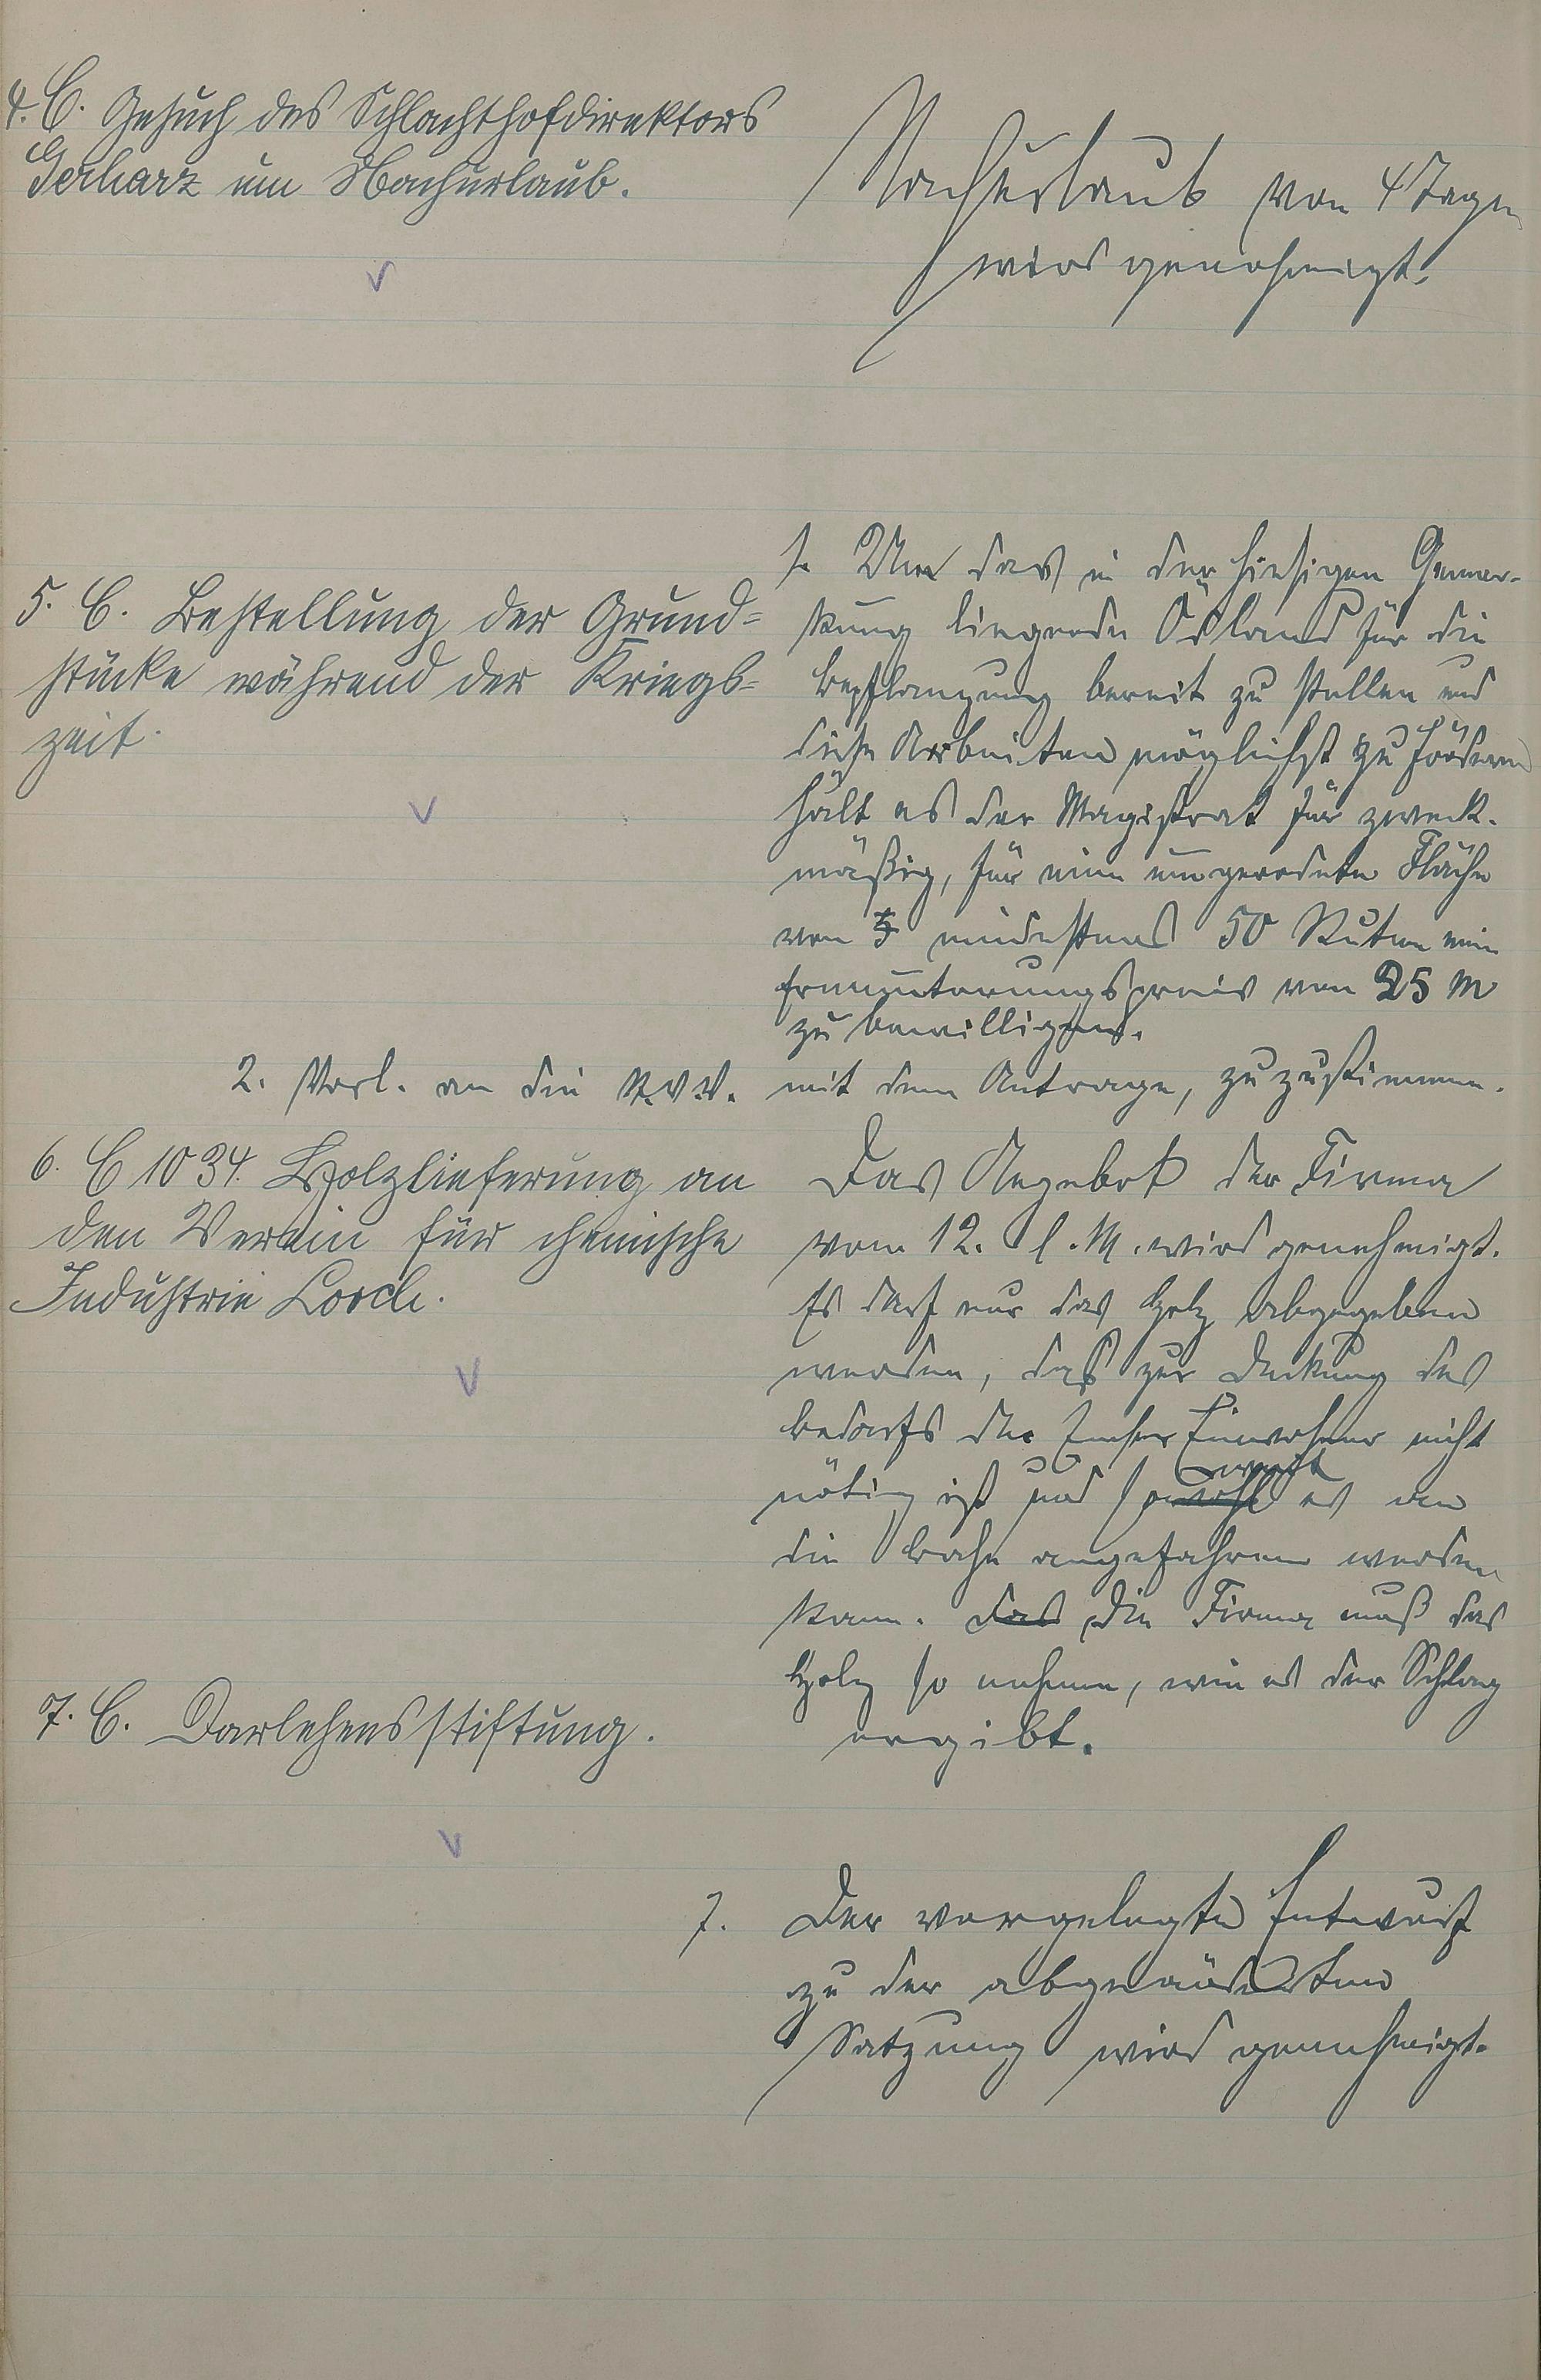 4. C. Gesuch des Schlachthofdirektors
Gerharz um Nachurlaub.
Nachurlaub von 4 Tagen
wird genehmigt.
5. C. Bestellung der Grund=
stücke während der Kriegs=
zeit.
1. Um das in der hiesigen Gemar-
kung liegende Ödland für die
Bepflanzung bereit zu stellen und
diese Arbeiten möglichst zu fördern
hält es der Magistrat für zweck-
mäßig, für eine umgerodete Fläche
von 5 mindestens 50 Ruten eine
Ermunterungspreis von 25 M
zu bewilligen.
2. Vorl. an die St.V.V. mit dem Antrage, zuzustimmen.
6. C 1034. Holzlieferung an
den Verein für chemische
Industrie Lorch.
Das Angebot der Firma
vom 12. l. M. wird genehmigt.
Es darf nur das Holz abgegeben
werden, das zur Deckung des
Bedarfs der Emser Einwohner nicht
nötig ist und soweit es an
die Bahn angefahren werden
kann. Das Die Firma muß das
Holz so nehmen, wie es der Schlag
ergibt.
7. C. Darlehensstiftung.
7. Der vorgelegte Entwurf
zu der abgeänderten
Satzung wird genehmigt.